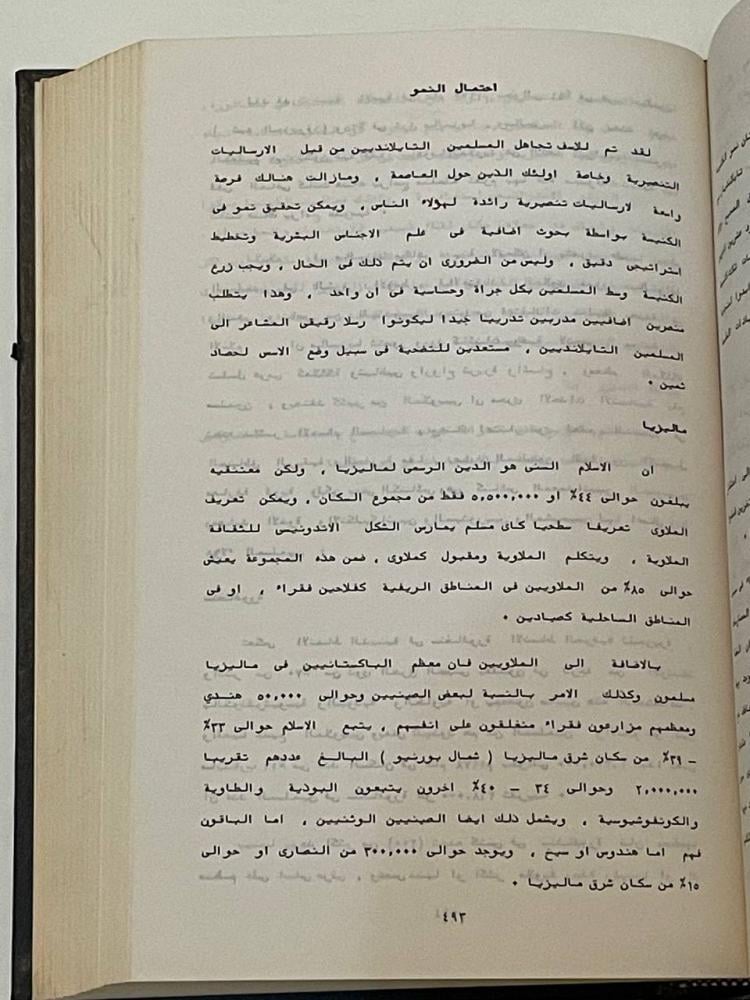 احتمال النمو
لقد تم للاسف تجاهل المسلمين التايلانديين من قبل الارساليات
التنصيرية وخاصة اولئك الذين حول العاصمة ، ومازالت هنالك فرصة
واسعة لارساليات تنصيرية رائدة لهؤلاء الناس ، ويمكن تحقيق نمو فى
الكنيسة بواسطة بحوث اضافية فى علم الاجناس البشرية وتخطيط
استراتيجى دقيق ، وليس من الضرورى ان يتم ذلك فى الحال ، ويجب زرع
الكنيسة وسط المسلمين بكل جراة وحساسية فى أن واحد ، وهذا يتطلب
منصرين اضافيين مدربين تدريبا جيدا ليكونوا رسلا رقيقى المشاعر الى
المسلمين التايلانديين ، مستعدين للتضحية فى سبيل وضع الاسس لحصاد
ثمين .
ماليزيا
ان الاسلام السنى هو الدين الرسمى لماليزيا ، ولكن معتنقيه
يبلغون حوالى ٤٤٪ او ٥,٥٠٠,٠٠٠ فقط من مجموع السكان ، ويمكن تعريف
الملاوى تعريفا سطحيا كاى مسلم يمارس الشكل الاندونيسى للثقافة
الملاوية ، ويتكلم الملاوية ومقبول كملاوى ، ضمن هذه المجموعة يعيش
حوالى ٨٥٪ من الملاويين فى المناطق الريفية كفلاحين فقراء ، او فى
المناطق الساحلية كصيادين .
بالاضافة الى الملاويين فان معظم الباكستانيين فى ماليزيا
مسلمون وكذلك الامر بالنسبة لبعض الصينيين وحوالى ٥٠,٠٠٠ هندي
ومعظمهم مزارعون فقراء منغلقون على انفسهم ، يتبع الاسلام حوالى ٣٣٪
– ٣٩٪ من سكان شرق ماليزيا ( شمال بورنيو ) البالغ عددهم تقريبا
٢,٠٠٠,٠٠٠ وحوالى ٣٤ – ٤٠٪ اخرون يتبعون البوذية والطاوية
والكونفوشيوسية ، ويشمل ذلك ايضا الصينيين الوثنيين ، اما الباقون
فهم اما هندوس او سيخ ، ويوجد حوالى ٣٠٠,٠٠٠ من النصارى او حوالى
١٥٪ من سكان شرق ماليزيا .
٤٩٣